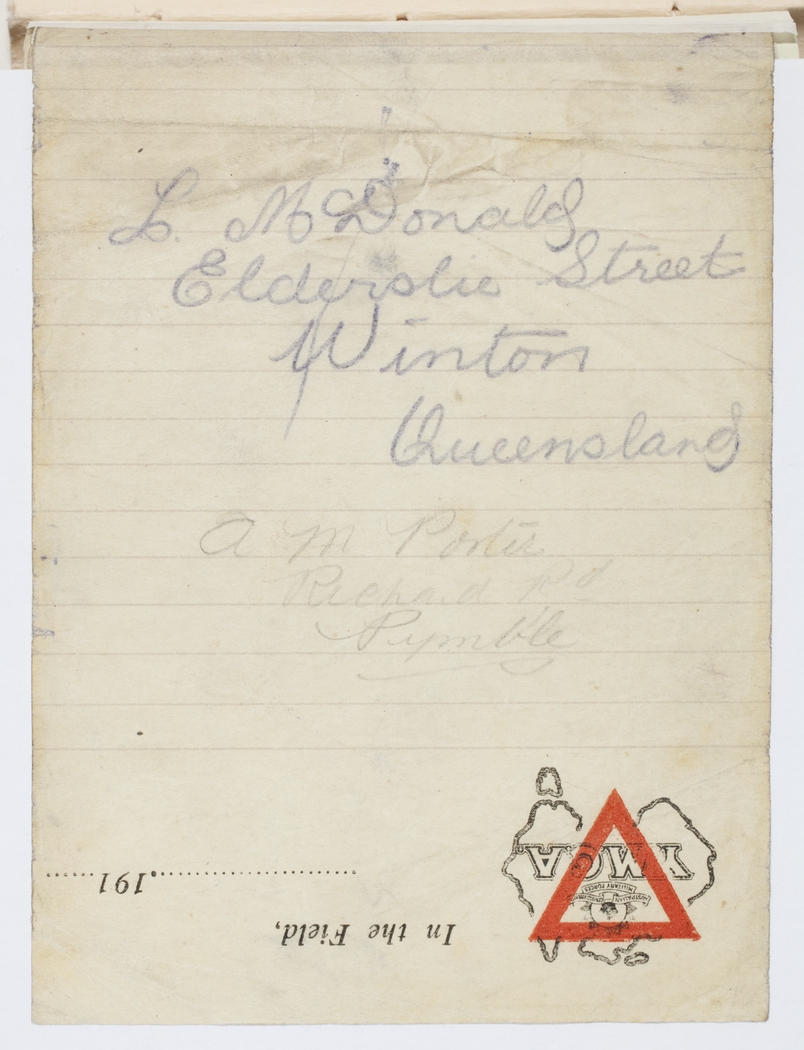 L. McDonald
Elderslie Street
Winton
Queensland
A M Porter
Richard Rd
Pymble
In the Field,
191
YMCA
AUSTRALIAN
MILITARY FORCES